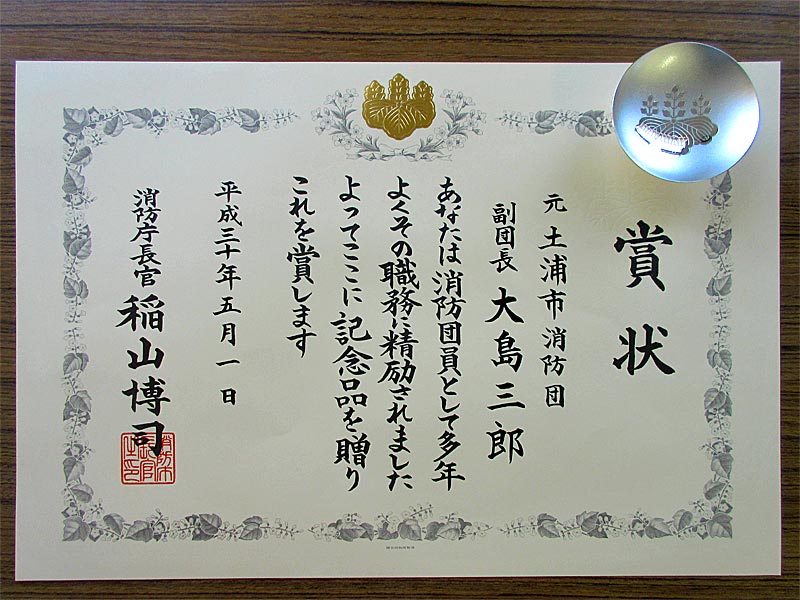 賞状
元 土浦市消防団
副団長 大島三郎
あなたは消防団員として多年
よくその職務に精励されました
よってここに記念品を贈り
これを賞します
平成三十年五月一日
消防庁長官 稲山博司